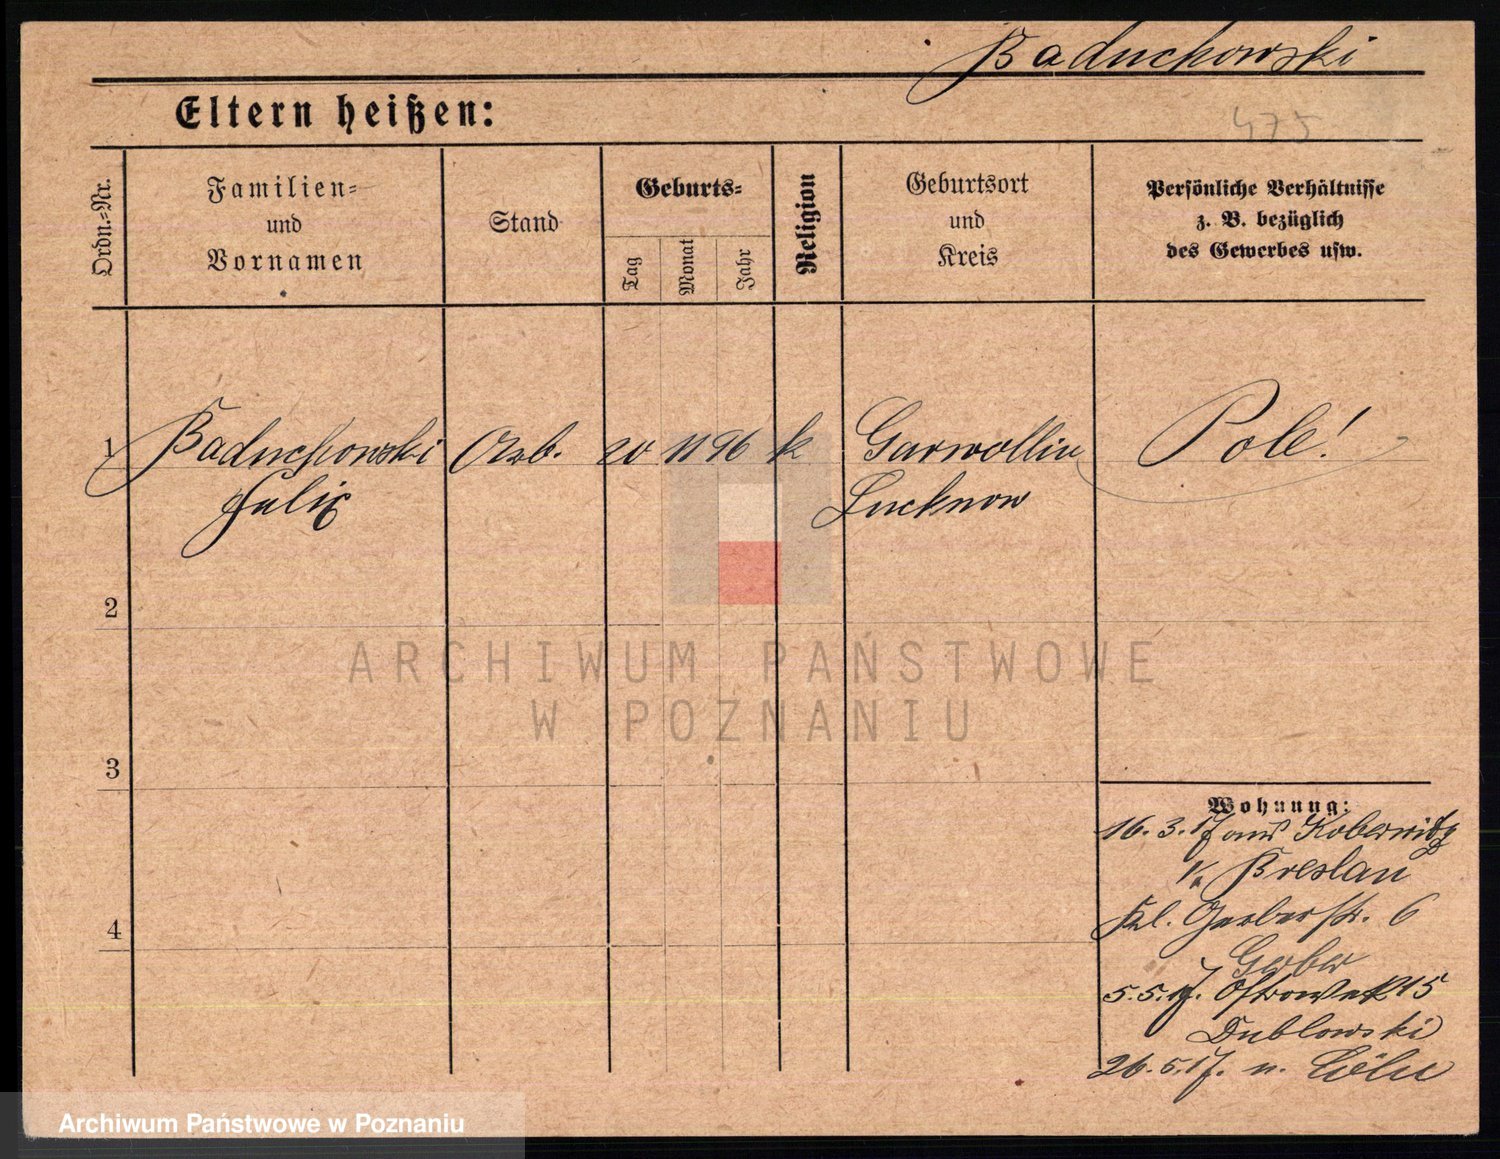 Baduchowski
Eltern heißen:
475
Ordn.=Nr.
Familien=
und
Vornamen
Stand
Geburts=
Tag
Monat
Jahr
Religion
Geburtsort
und
Kreis
Persönliche Verhältnisse
z. B. bezüglich
des Gewerbes usw.
1 Baduchowski Arb. 20 11 96 k Garwollin Pole!
Felix Lucknow
2
3
4
Wohnung:
16. 3. 17 aus Koberwitz
Breslau
Kl. Gerberstr. 6
Gerber
5. 5. 17. Ostrowek 15
Dublowski
26. 5. 17. n. Cöln
ARCHIWUM PAŃSTWOWE
W POZNANIU
Archiwum Państwowe w Poznaniu